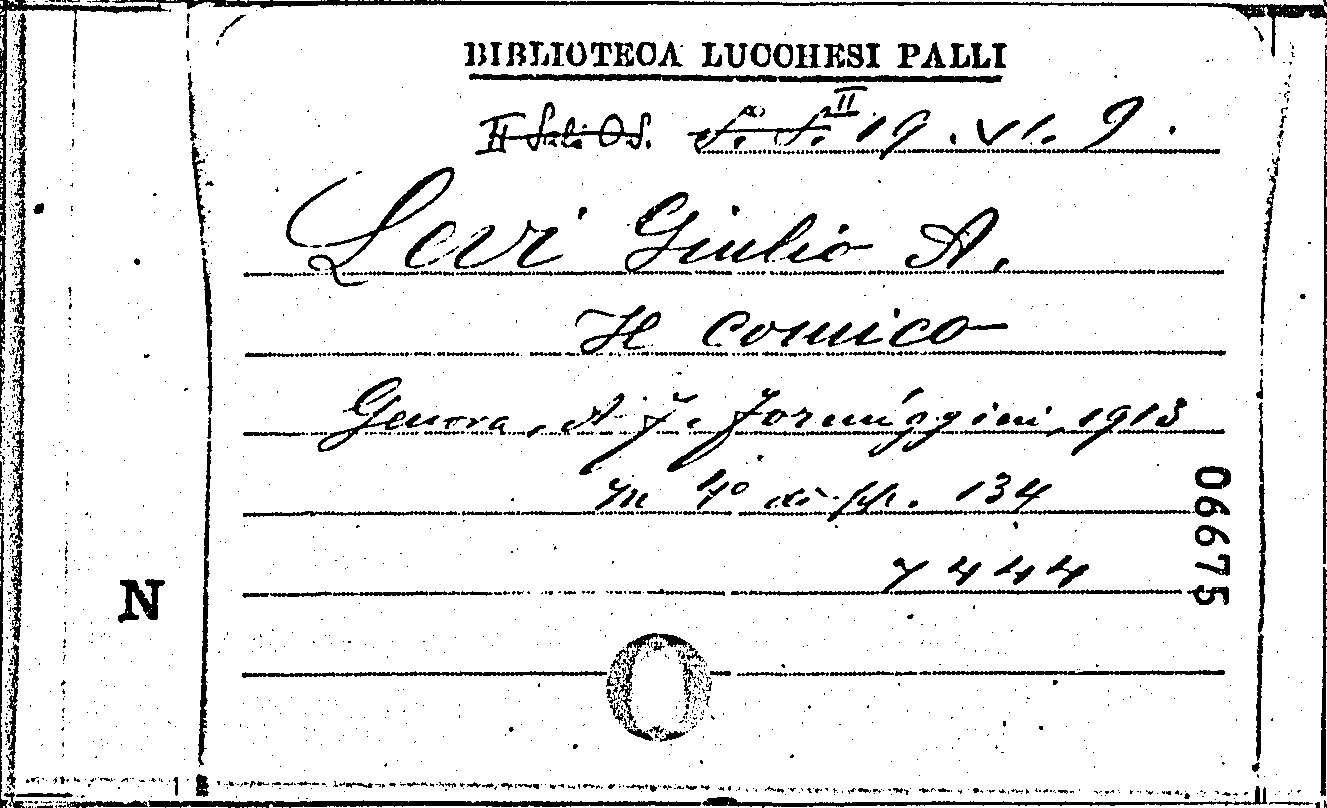 BIBLIOTECA LUCCHESI PALLI
II 19. VI. 9.
Levi Giulio A.
Il comico
Genova, A. F. Formiggini, 1913
in 4° di pp. 134
7444
06675
N